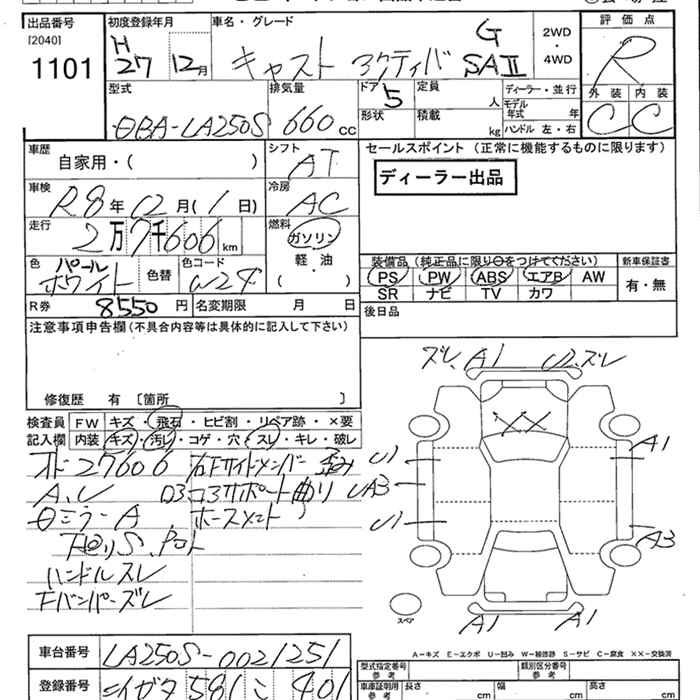 出品番号 初度登録年月 車名・グレード 評価点
[2040] H G 2WD
1101 27 12月 キャスト アクティバ SAⅡ ・ R
4WD
型式 排気量 ドア 定員 ディーラー・並行 外装 内装
5 人 モデル年式 年
ΘBA-LA250S 660cc 形状 積載 kg ハンドル 左・右 C C
車歴 シフト セールスポイント (正常に機能するものに限ります)
自家用・( ) AT
ディーラー出品
車検 冷房
R8年12月(1日) AC
走行 燃料
2万7千606km ガソリン
軽・油
( )
装備品 (純正品に限り○をつけてください) 新車保証書
色 パールホワイト 色替 色コード W24
PS PW ABS エアB AW 有・無
SR ナビ TV カワ
R券 8550円 名変期限 月 日 後日品
注意事項申告欄(不具合内容等は具体的に記入して下さい)
修復歴 有 〔箇所 〕
検査員記入欄 FW キズ・飛石・ヒビ割・リペア跡・×要
内装 キズ・汚レ・コゲ・穴・スレ・キレ・破レ
オド27606 右Fサイドメンバー歪み
A、U ロЗコアサポート曲り
Θミラー A ホースメント 〃
下廻りS、
ハンドルスレ
Fバンパーズレ
ズレ、A1 U2、ズレ
××
U1 A1
UA3
U1 A3
A1 A1
スペア
A-キズ E-エクボ U-凹み W-補修跡 S-サビ C-腐食 ××-交換済
車台番号 LA250S-0021251
型式指定番号 参考 類別区分番号 参考
登録番号 ニイガタ 581 こ 401
車庫証明用 参考 長さ cm 幅 cm 高さ cm